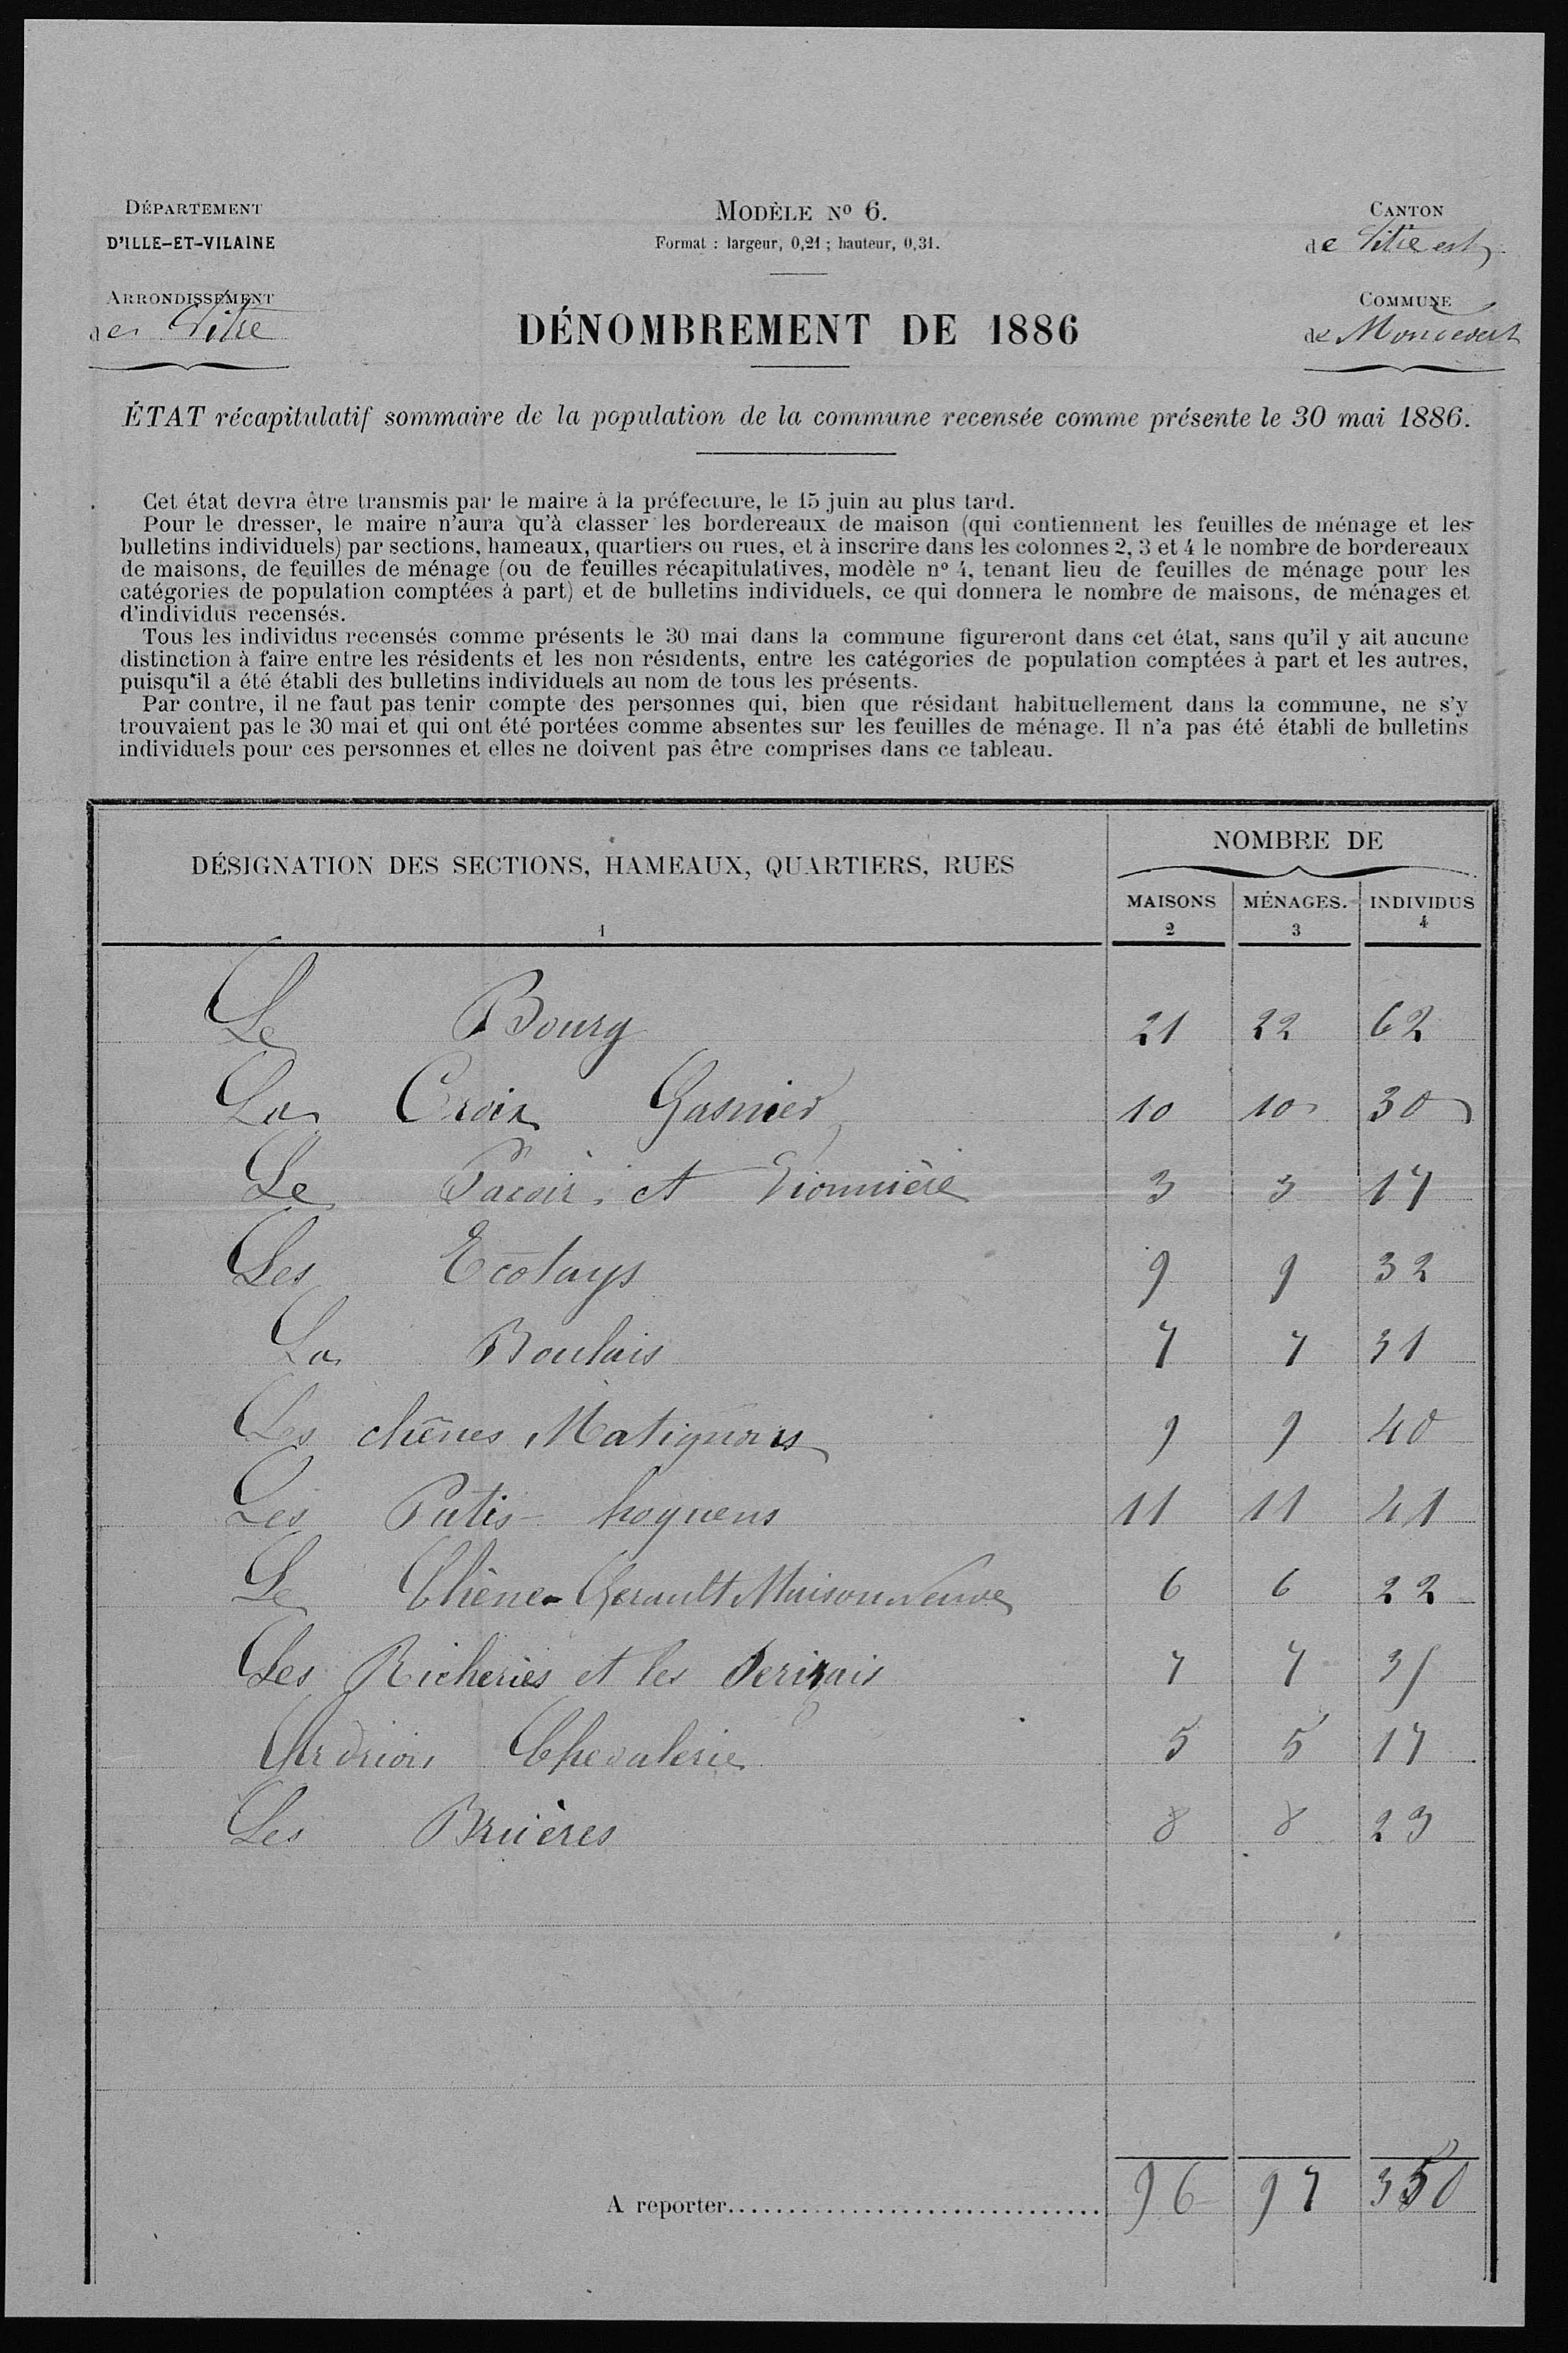 DÉPARTEMENT
D'ILLE-ET-VILAINE
ARRONDISSEMENT
de Vitré
MODÈLE Nº 6.
Format : largeur, 0,21 ; hauteur, 0,31.
DÉNOMBREMENT DE 1886
CANTON
de Vitré est
COMMUNE
de Mondevert
ÉTAT récapitulatif sommaire de la population de la commune recensée comme présente le 30 mai 1886.
Cet état devra être transmis par le maire à la préfecture, le 15 juin au plus tard.
Pour le dresser, le maire n'aura qu'à classer les bordereaux de maison (qui contiennent les feuilles de ménage et les
bulletins individuels) par sections, hameaux, quartiers ou rues, et à inscrire dans les colonnes 2, 3 et 4 le nombre de bordereaux
de maisons, de feuilles de ménage (ou de feuilles récapitulatives, modèle nº 4, tenant lieu de feuilles de ménage pour les
catégories de population comptées à part) et de bulletins individuels, ce qui donnera le nombre de maisons, de ménages et
d'individus recensés.
Tous les individus recensés comme présents le 30 mai dans la commune figureront dans cet état, sans qu'il y ait aucune
distinction à faire entre les résidents et les non résidents, entre les catégories de population comptées à part et les autres,
puisqu'il a été établi des bulletins individuels au nom de tous les présents.
Par contre, il ne faut pas tenir compte des personnes qui, bien que résidant habituellement dans la commune, ne s'y
trouvaient pas le 30 mai et qui ont été portées comme absentes sur les feuilles de ménage. Il n'a pas été établi de bulletins
individuels pour ces personnes et elles ne doivent pas être comprises dans ce tableau.
DÉSIGNATION DES SECTIONS, HAMEAUX, QUARTIERS, RUES
NOMBRE DE
MAISONS MÉNAGES. INDIVIDUS
1 2 3 4
Le Bourg 21 22 62
La Croix Gasnier 10 10 30
Le et 3 3 17
Les Ecotays 9 9 32
La Boulais 7 7 31
Les chênes Matignons 9 9 40
Les Patis hoguens 11 11 41
Le Chêne-Gerault Maison Neuve 6 6 22
Les Richeries et les 7 7 35
Chevalerie 5 5 17
Les Bruères 8 8 23
A reporter 96 97 350